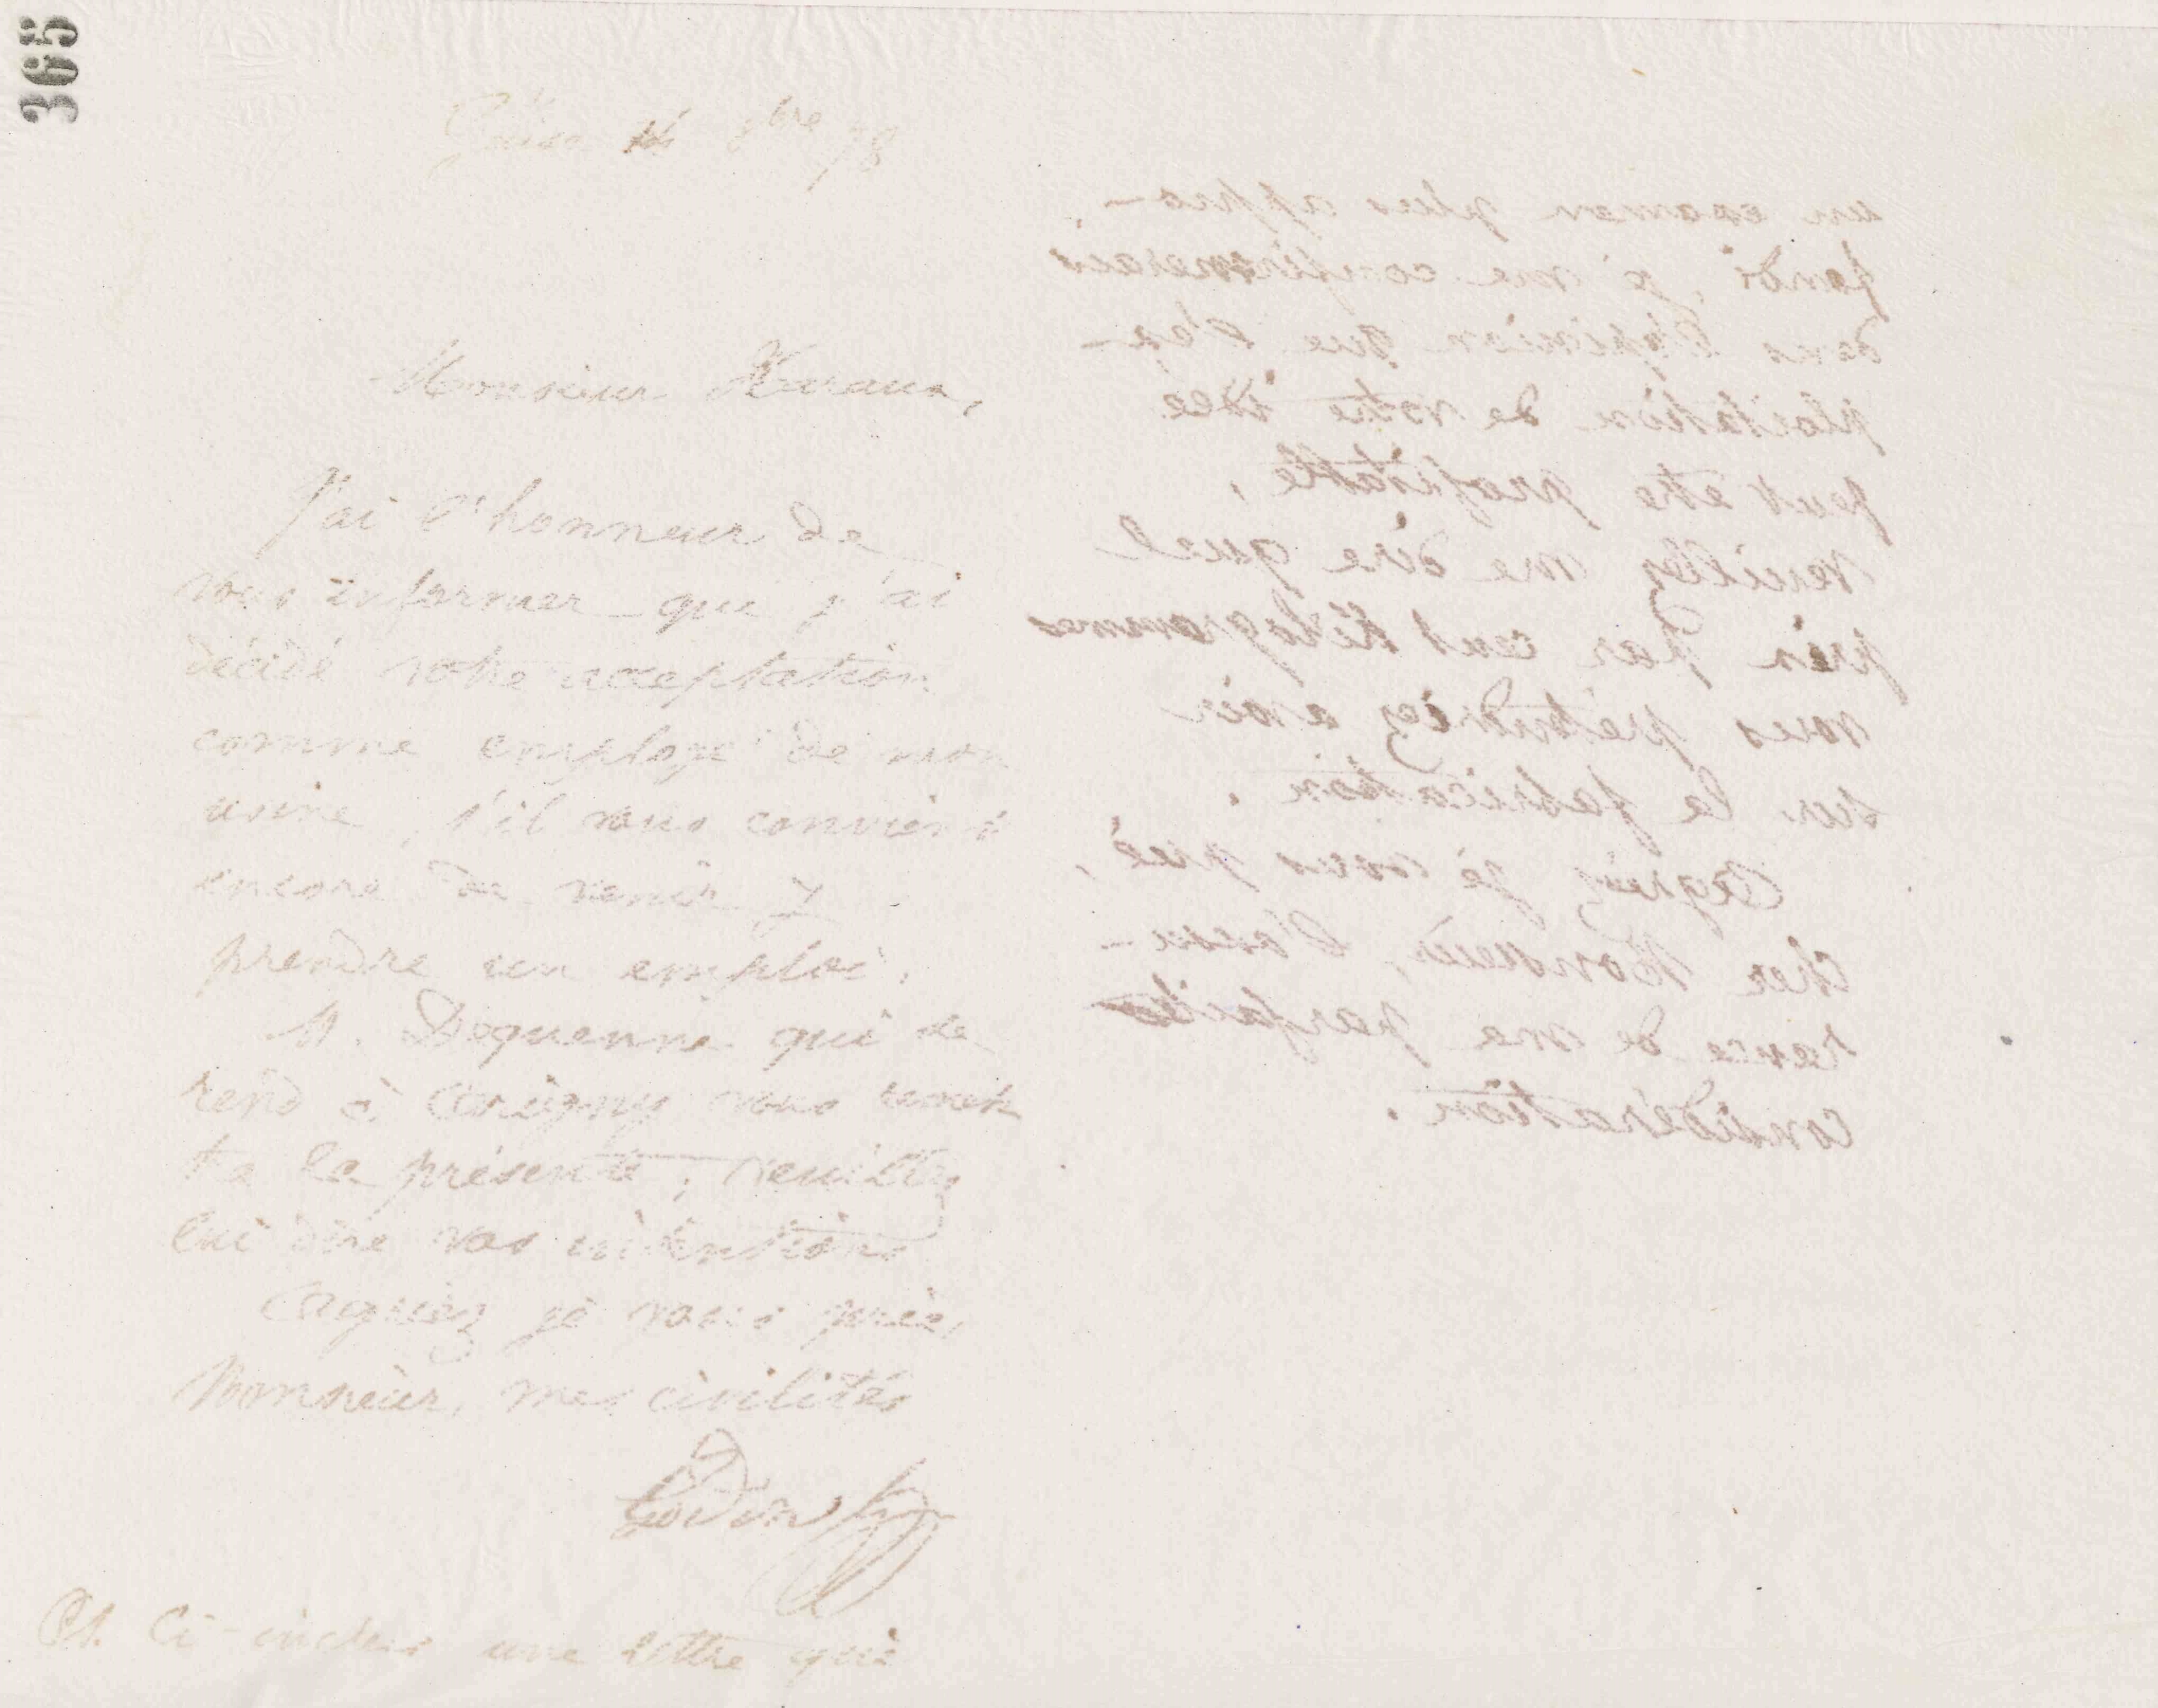 365
Guise 16 8bre 78
Monsieur
J'ai l'honneur de
vous informer que j'ai
décidé votre acceptation
comme employé de mon
usine, s'il vous convient
encore de venir y
prendre un emploi.
M. Dequenne qui se
rend à Origny vous remet-
tra la présente, veuillez
lui dire vos intentions
Agréez je vous prie,
Monsieur, mes civilités
Godin
PS. Ci-inclus une lettre qui
un examen plus appro-
fondi, je me confirmerais
dans l'opinion que l'ex-
ploitation de votre idée
peut être profitable,
veuillez me dire quel
prix par cent kilogrammes
vous prétendriez avoir
sur la fabrication.
Agréez je vous prie,
Cher Monsieur, l'assu-
rance de ma parfaite
considération.